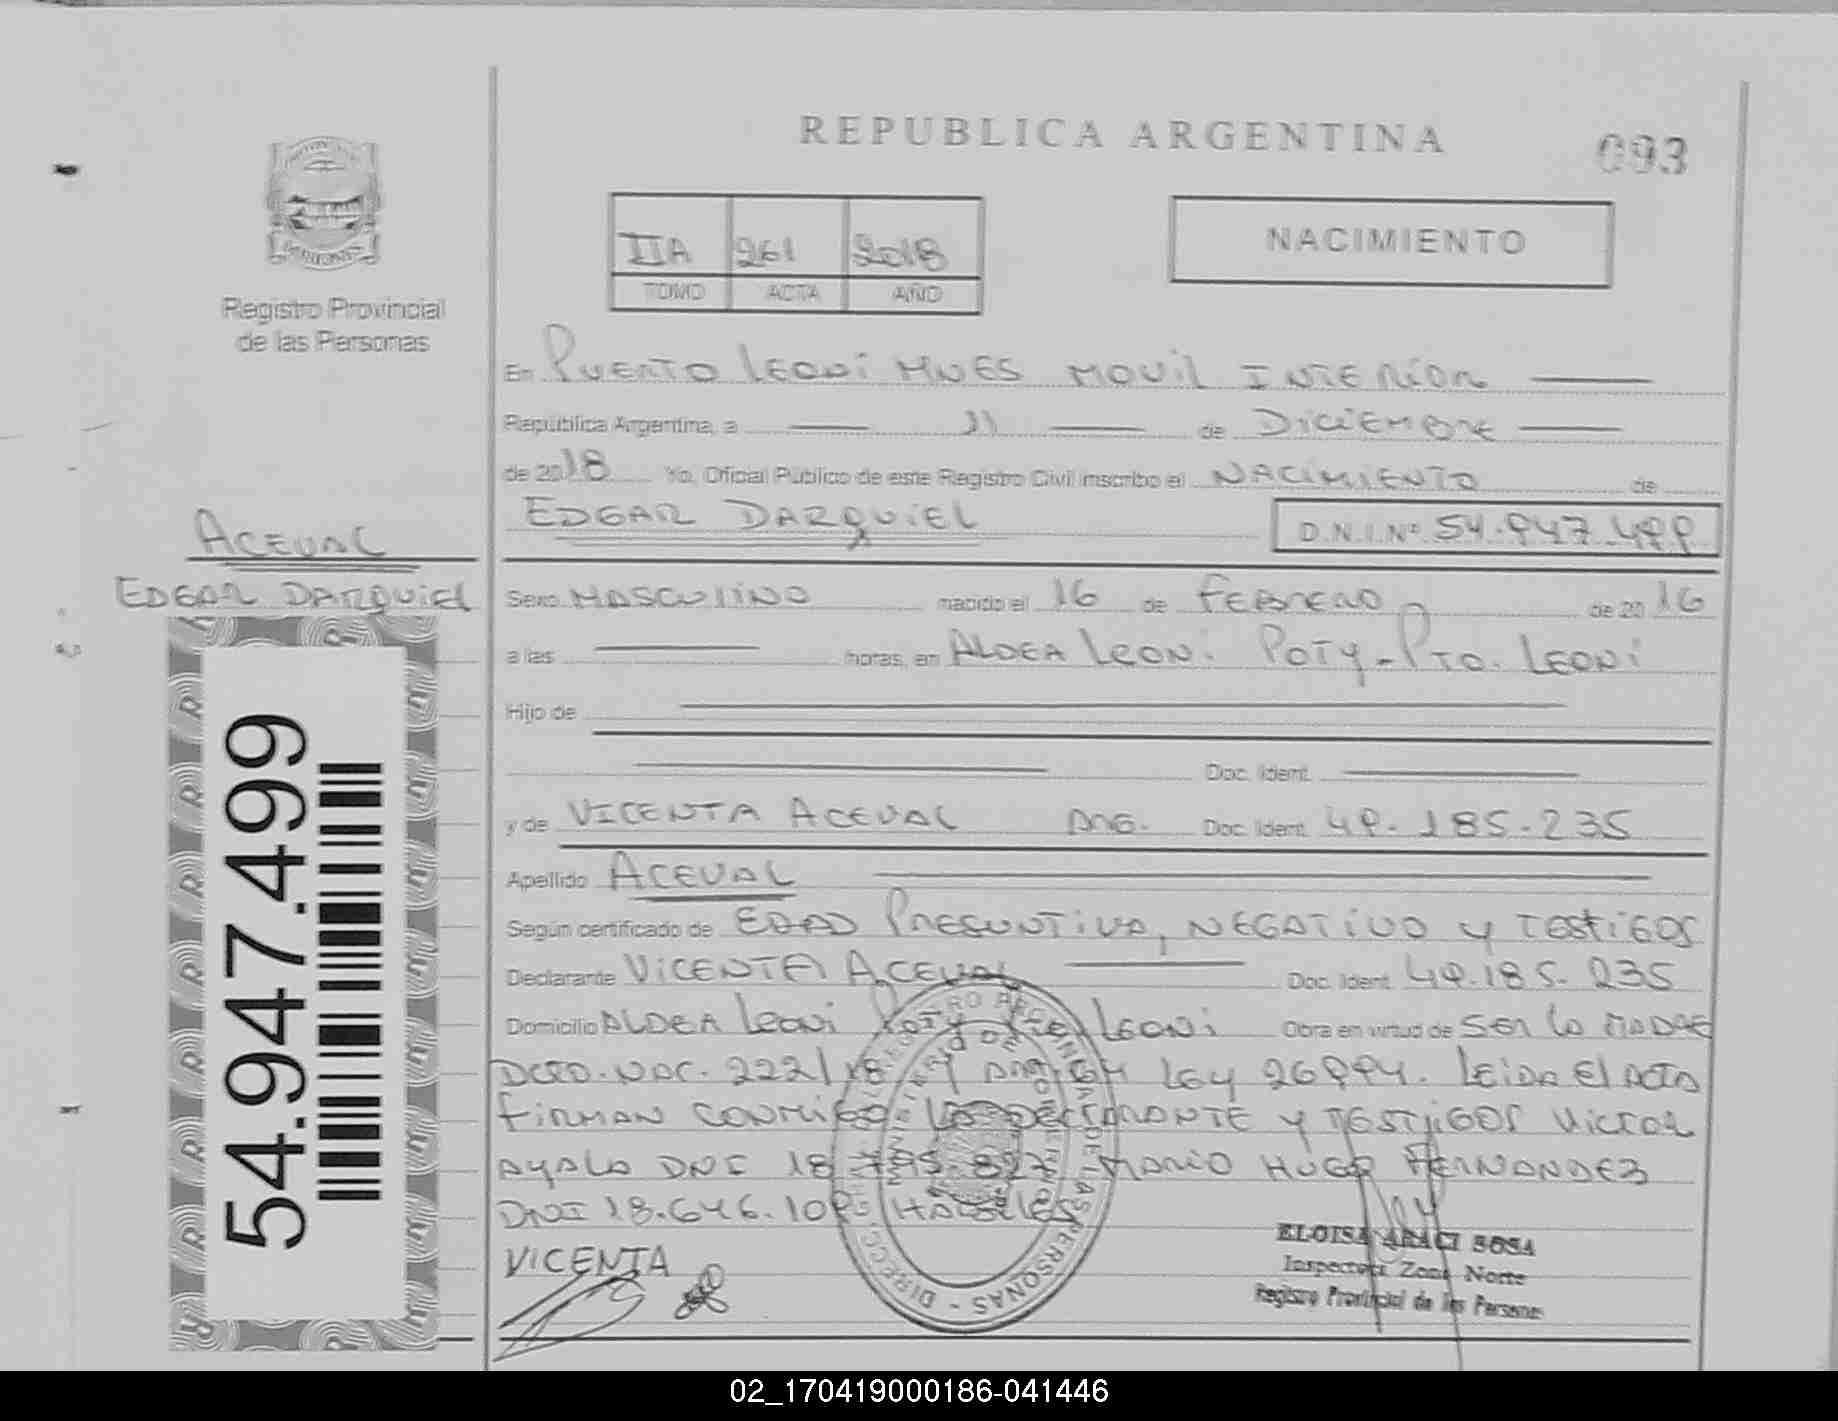 REPUBLICA ARGENTINA
093
IIA 261 2018
TOMO ACTA AÑO
NACIMIENTO
Registro Provincial
de las Personas
En PUERTO LEONI MNES MOVIL INTERIOR
República Argentina, a 11 de DICIEMBRE
de 2018 Yo, Oficial Público de este Registro Civil inscribo el NACIMIENTO de
EDGAR DARQUIEL D.N.I. Nº 54.947.499
ACEVAL
EDGAR DARQUIEL
54.947.499
Sexo MASCULINO nacido el 16 de FEBRERO de 2016
a las horas, en ALDEA LEONI POTY - PTO. LEONI
Hijo de
Doc. Ident.
y de VICENTA ACEVAL ARG. Doc. Ident. 49.185.235
Apellido ACEVAL
Según certificado de EDAD PRESUNTIVA, NEGATIVO Y TESTIGOS
Declarante VICENTA ACEVAL Doc. Ident. 49.185.235
Domicilio ALDEA LEONI POTY LEONI Obra en virtud de SER LA MADRE
DCTO. NAC. 222/18 Y LEY 26994. LEIDA EL ACTA
FIRMAN CONMIGO LA DECLARANTE Y TESTIGOS VICTOR
AYALA DNI 18 MARIO HUGO FERNANDEZ
DNI 18.646.109 HABILES
VICENTA
ELOISA ARACI SOSA
Inspectora Zona Norte
Registro Provincial de las Personas
DE LAS PERSONAS - DIRECC
02_170419000186-041446